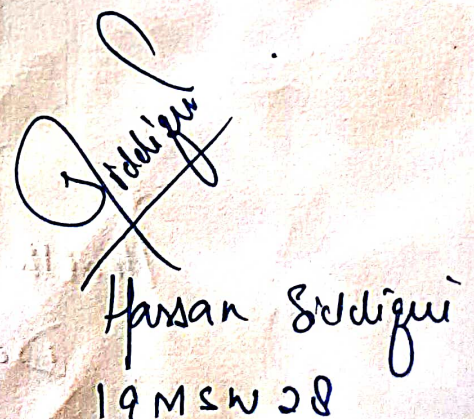 Siddiqui
Hassan Siddiqui
19MSW28